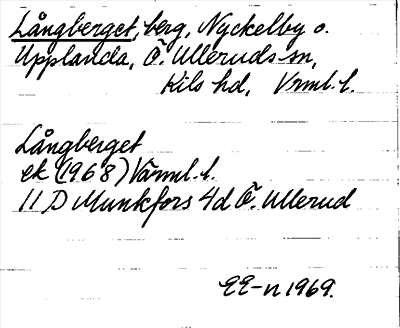 Långberget, berg, Nyckelby o.
Upplanda, Ö. Ulleruds sn,
Kils hd, Vrml. l.
Långberget
ek (1968) Värml. l.
11 D Munkfors 4d Ö. Ullerud
EE-n 1969.